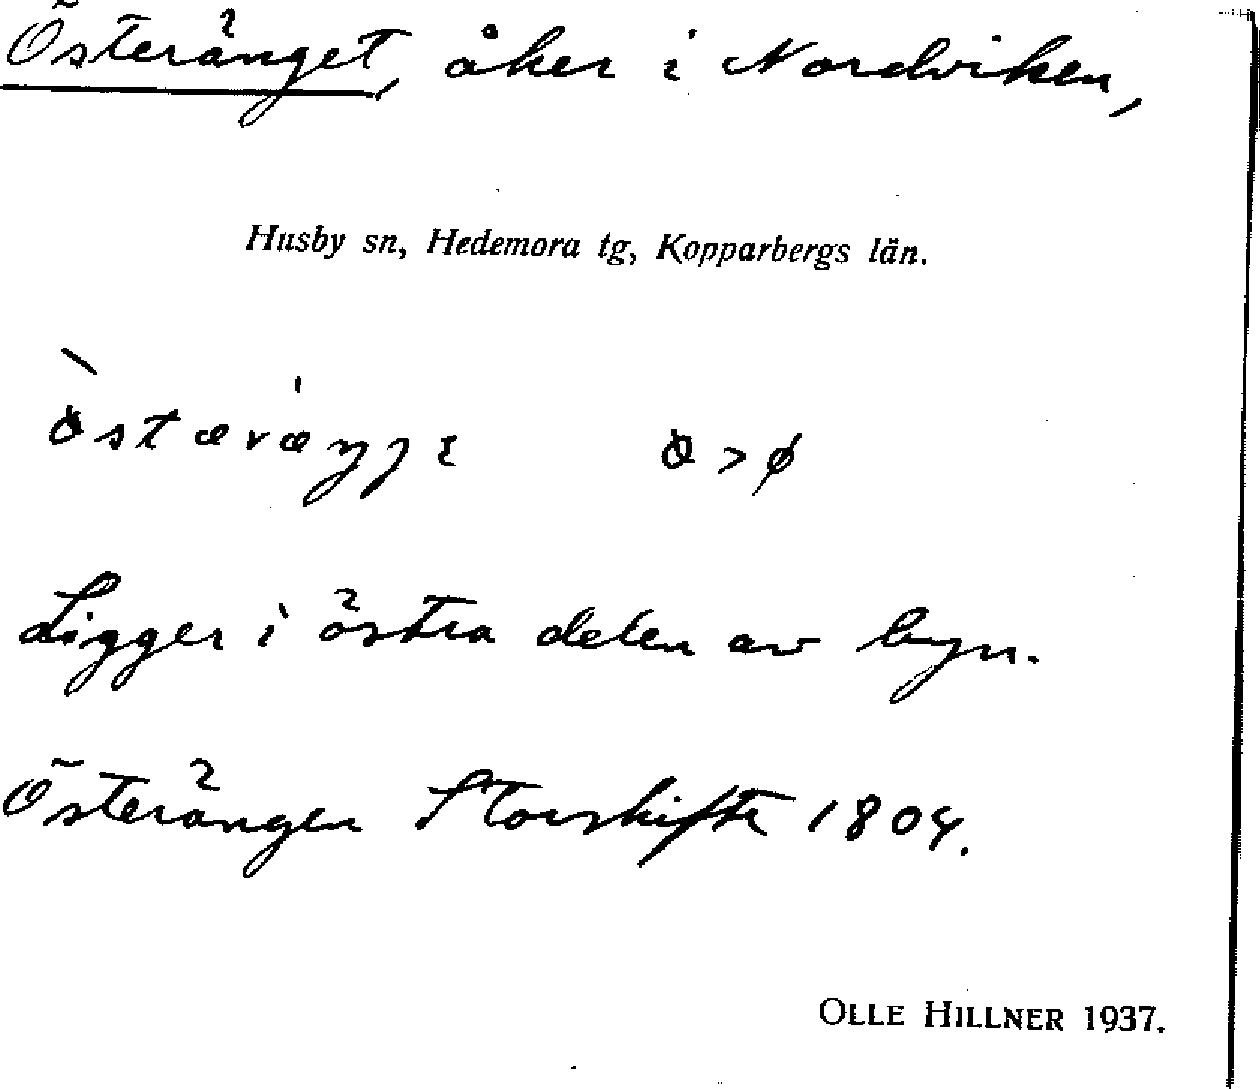 Österänget, åker i Nordviken,
Husby sn, Hedemora tg, Kopparbergs län.
Ligger i östra delen av byn.
Österängen Storskifte 1804.
OLLE HILLNER 1937.